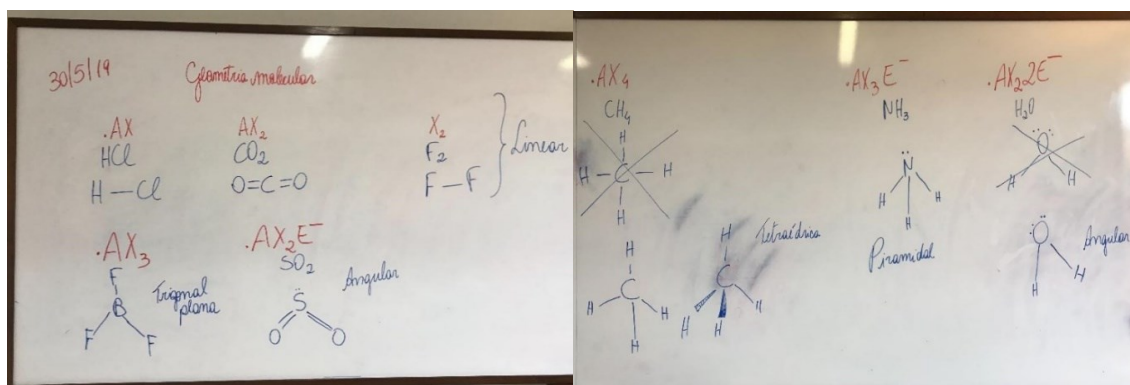 30/5/19 Geometria molecular
.AX AX₂ X₂
HCl CO₂ F₂
H—Cl O=C=O F—F
} Linear
.AX₃ .AX₂E⁻
SO₂
F
B
F F
Trigonal
plana
S̈
O O
Angular
.AX₄
CH₄
H
H—C—H
H
H
C
H H
H
H
C
H H H
Tetraédrica
.AX₃E⁻
NH₃
N̈
H H H
Piramidal
.AX₂2E⁻
H₂O
O
H H
O
H H
Angular